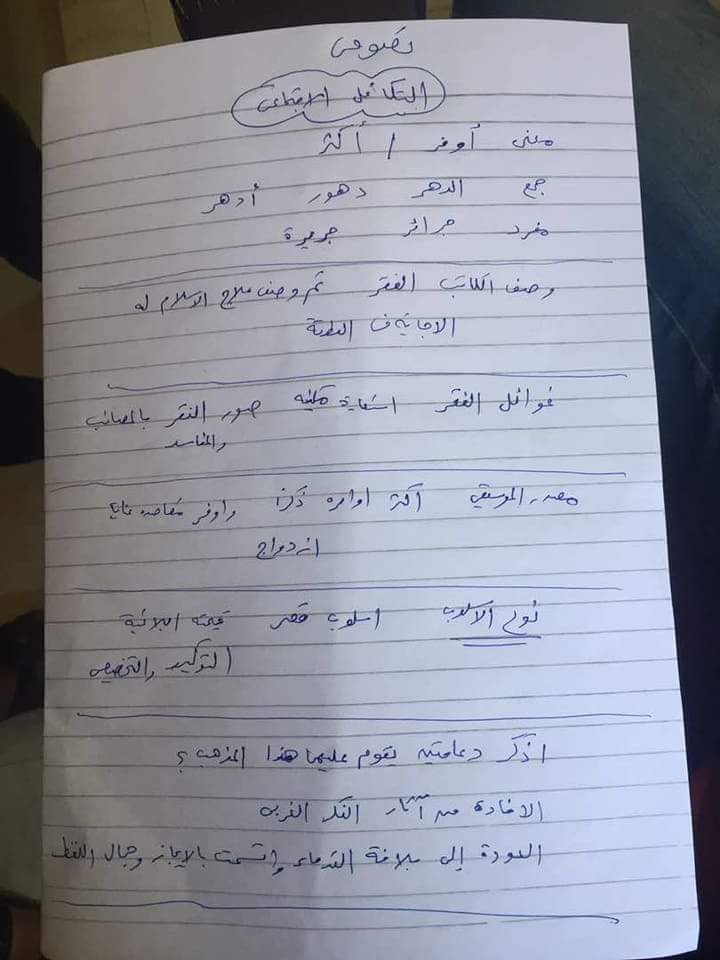 نصوص
التكافل الاجتماعى
معنى أوفر / أكثر
جمع الدهر دهور أدهر
مفرد جرائر جريرة
وصف الكاتب الفقر ثم وصف علاج الاسلام له
الاجابة ف القطعة
غوائل الفقر استعارة مكنيه صور الفقر بالمصائب
والمفاسد
مصدر الموسيقي أكثر اوامره ذكرا وأوفر مقاصده
ازدواج
نوع الاسلوب اسلوب قصر قيمته البلاغية
التوكيد والتخصيص
اذكر دعامتين يقوم عليهما هذا المذهب؟
الافادة من آثار الفكر الغربى
العودة إلى بلاغة القدماء واتسمت بالايجاز وجمال اللفظ